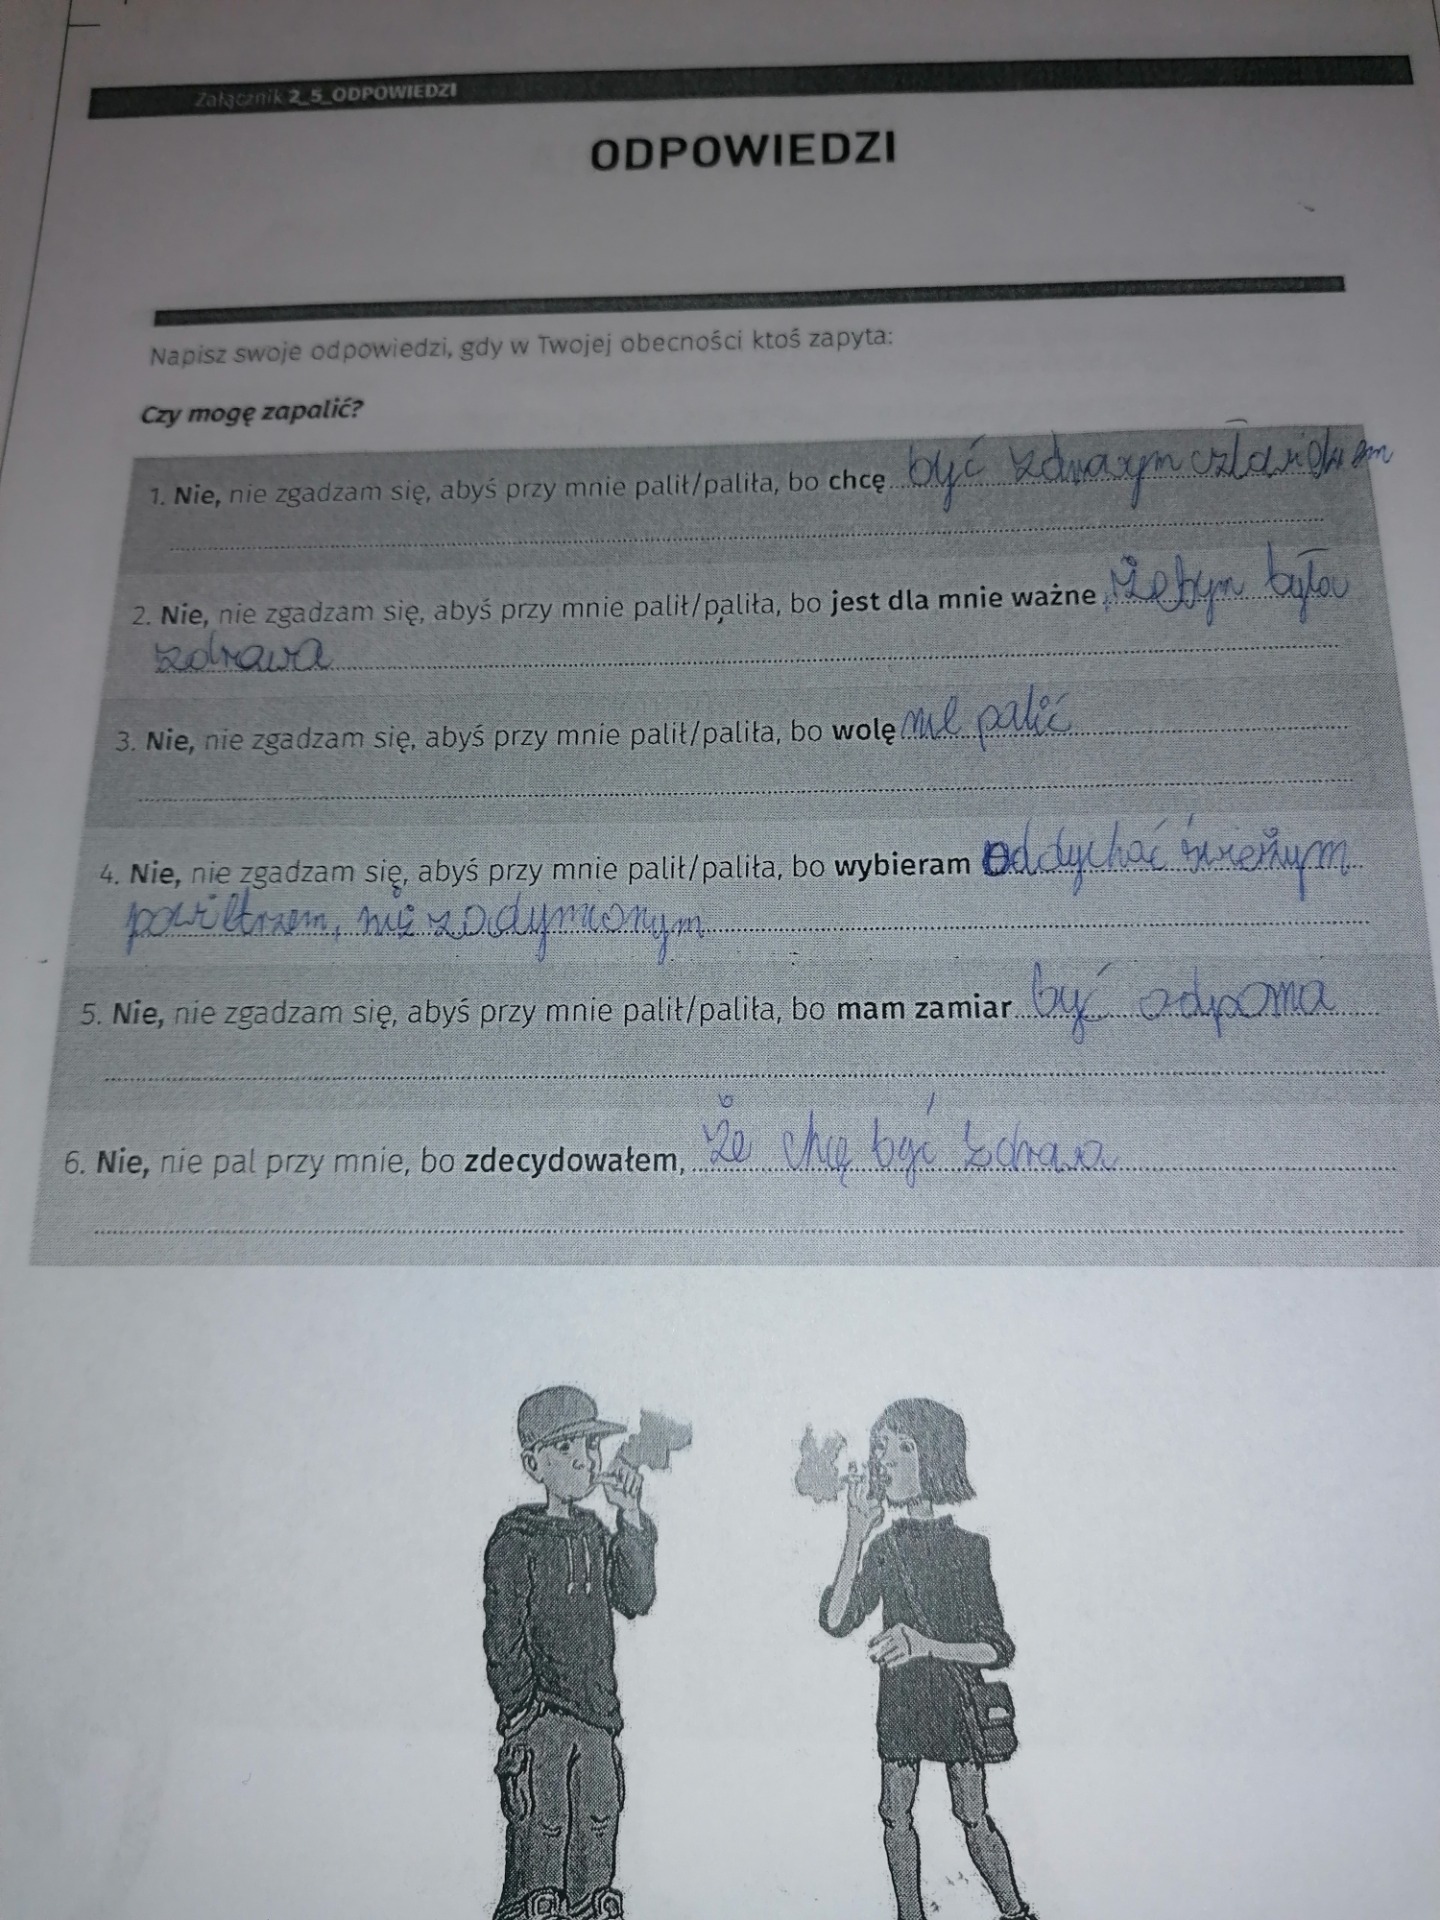 Załącznik 2_5_ODPOWIEDZI
ODPOWIEDZI
Napisz swoje odpowiedzi, gdy w Twojej obecności ktoś zapyta:
Czy mogę zapalić?
1. Nie, nie zgadzam się, abyś przy mnie palił/paliła, bo chcę być zdrowym człowiekiem
2. Nie, nie zgadzam się, abyś przy mnie palił/paliła, bo jest dla mnie ważne, żebym była
zdrawa
3. Nie, nie zgadzam się, abyś przy mnie palił/paliła, bo wolę nie palić
4. Nie, nie zgadzam się, abyś przy mnie palił/paliła, bo wybieram oddychać świeżym
powietrzem, niż zadymionym
5. Nie, nie zgadzam się, abyś przy mnie palił/paliła, bo mam zamiar być odporna
6. Nie, nie pal przy mnie, bo zdecydowałem, że chcę być zdrawa